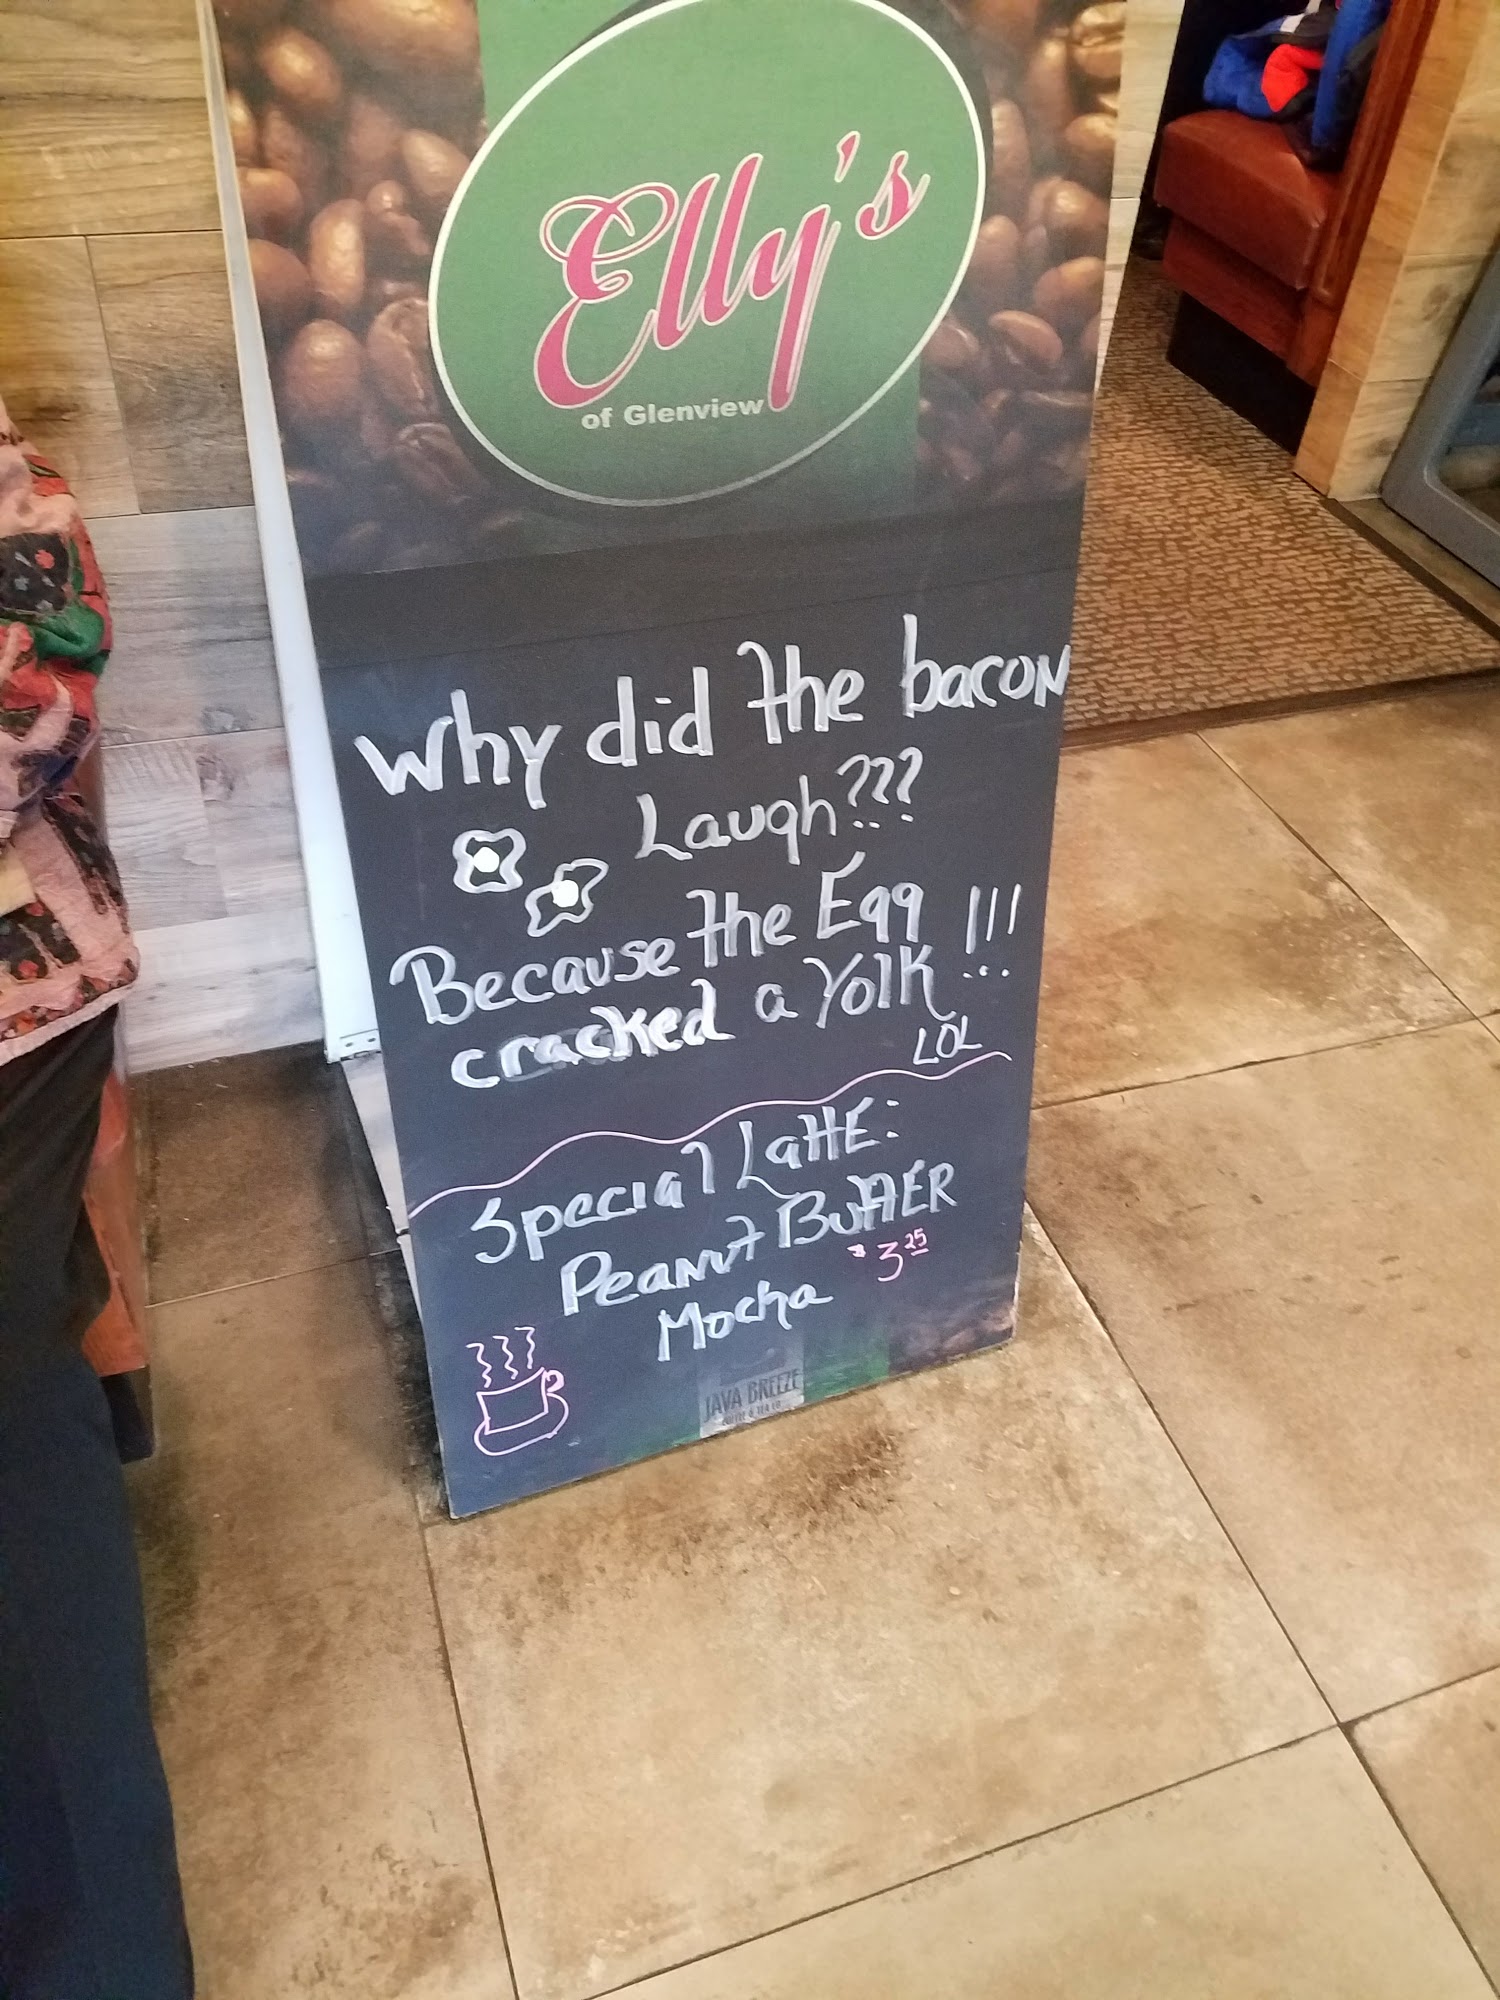 Elly's
of Glenview
Why did the bacon
Laugh???
Because the Egg
cracked a Yolk!!!
LOL
Special Latte:
Peanut Butter
Mocha $3.25
JAVA BREEZE
COFFEE & TEA CO